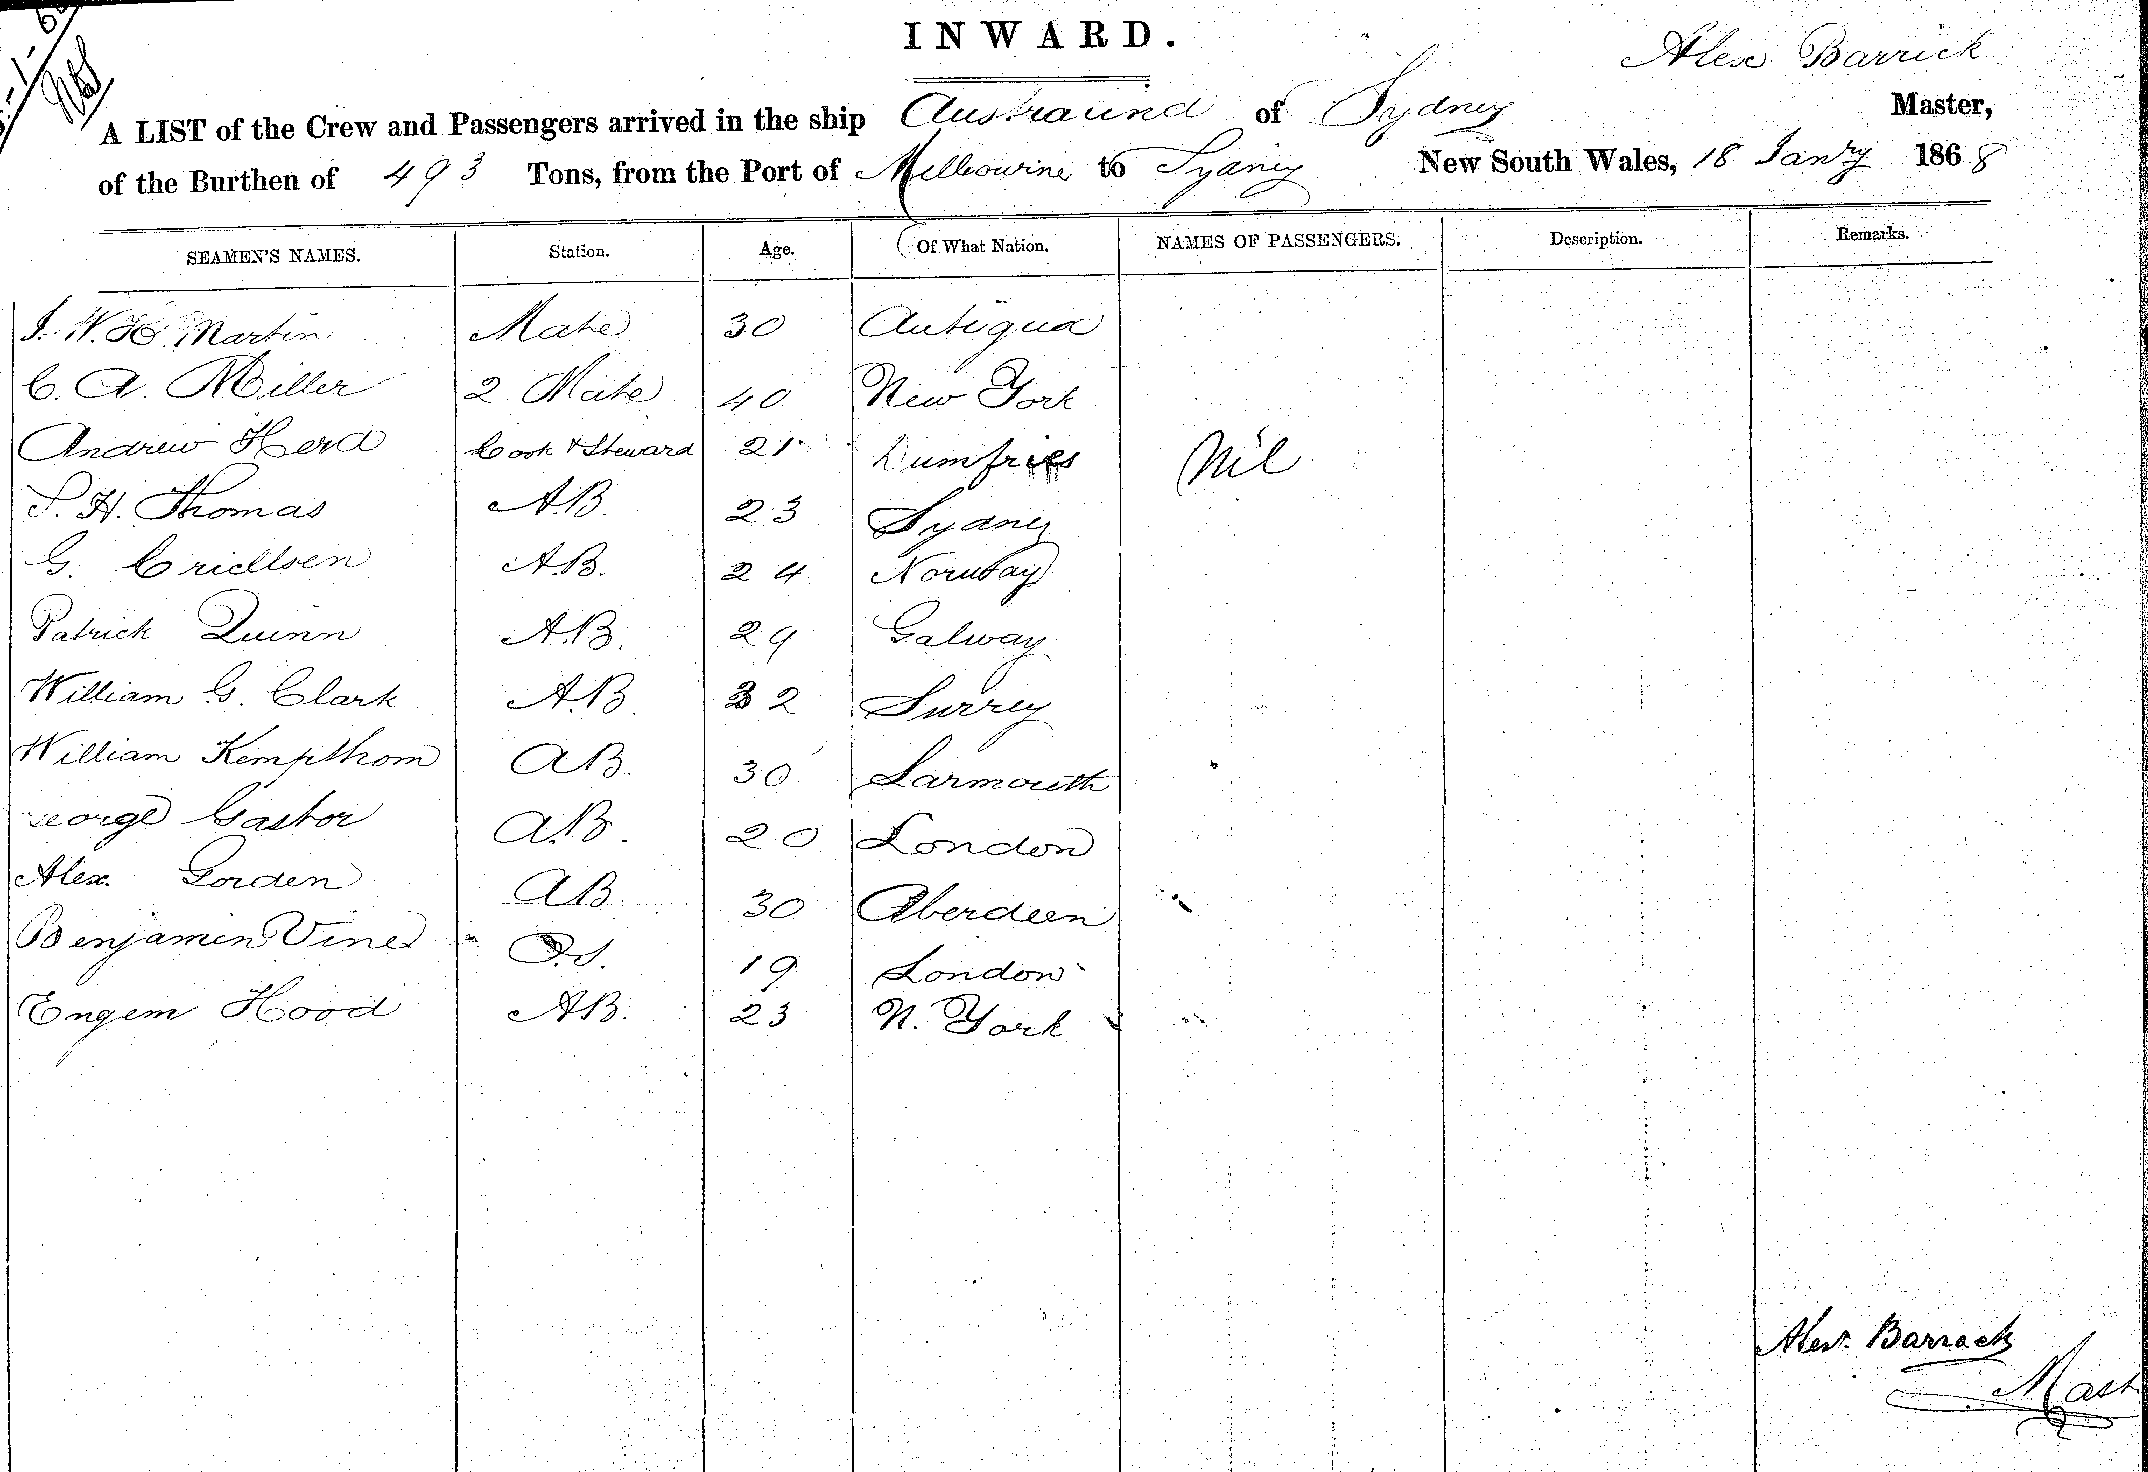 INWARD.
Alex Barrick
A LIST of the Crew and Passengers arrived in the ship Austraiind of Sydney Master,
of the Burthen of 493 Tons, from the Port of Melbourne to Sydney New South Wales, 18 Janry 1868
SEAMEN'S NAMES. Station. Age. Of What Nation. NAMES OF PASSENGERS. Description. Remarks.
J. W. H. Martin Mate 30 Antigua
C. A. Miller 2 Mate 40 New York
Andrew Herd Cook & Steward 21 Dumfries Nil
S. H. Thomas A.B. 23 Sydney
G. Criellsen A.B. 24 Norway
Patrick Quinn A.B. 29 Galway
William G. Clark A.B 32 Surrey
William Kempthom AB. 30 Larmouth
eorge Gastor A.B. 20 London
Alex. Gorden AB 30 Aberdeen
Benjamen Vines O.S. 19 London
Engem Hood AB. 23 N. York
Alexr. Barrack
Mast